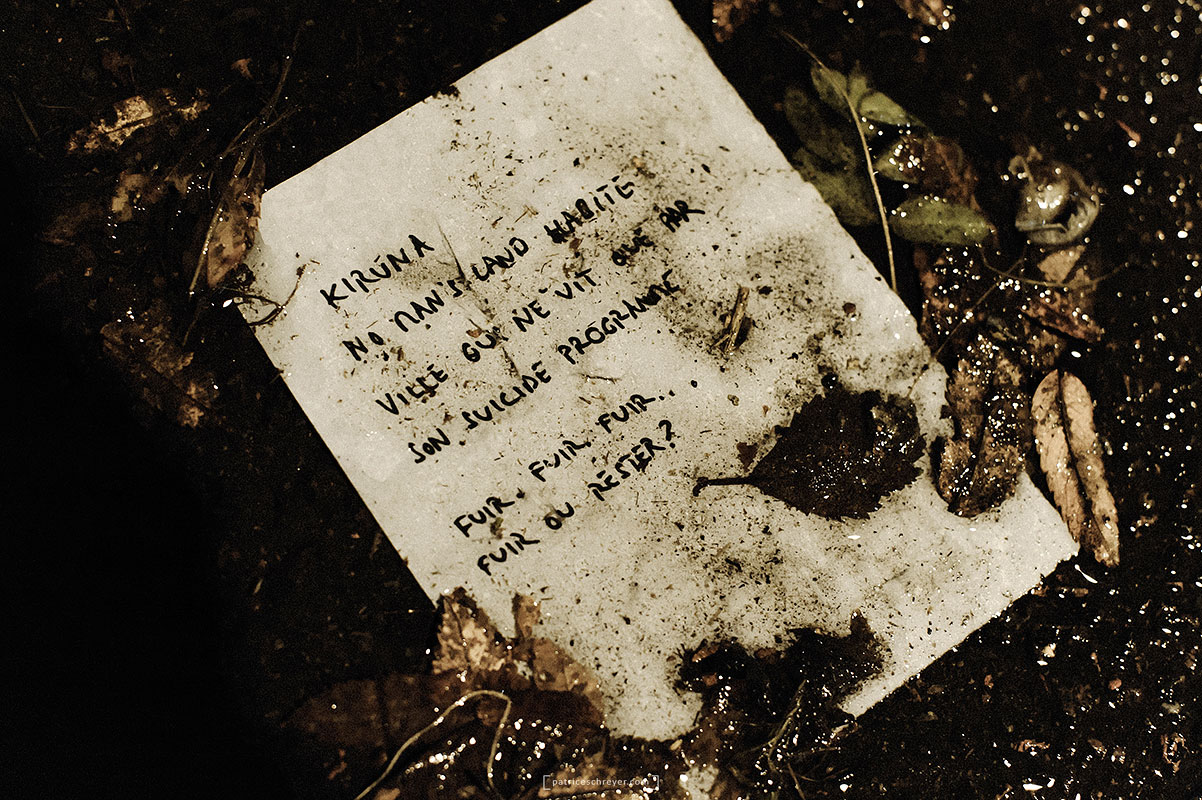 KIRUNA
NO MAN'S LAND HABITÉ
VILLE QUI NE VIT QUE PAR
SON SUICIDE PROGRAMMÉ
FUIR, FUIR, FUIR..
FUIR OU RESTER?
patriceschreyer.com